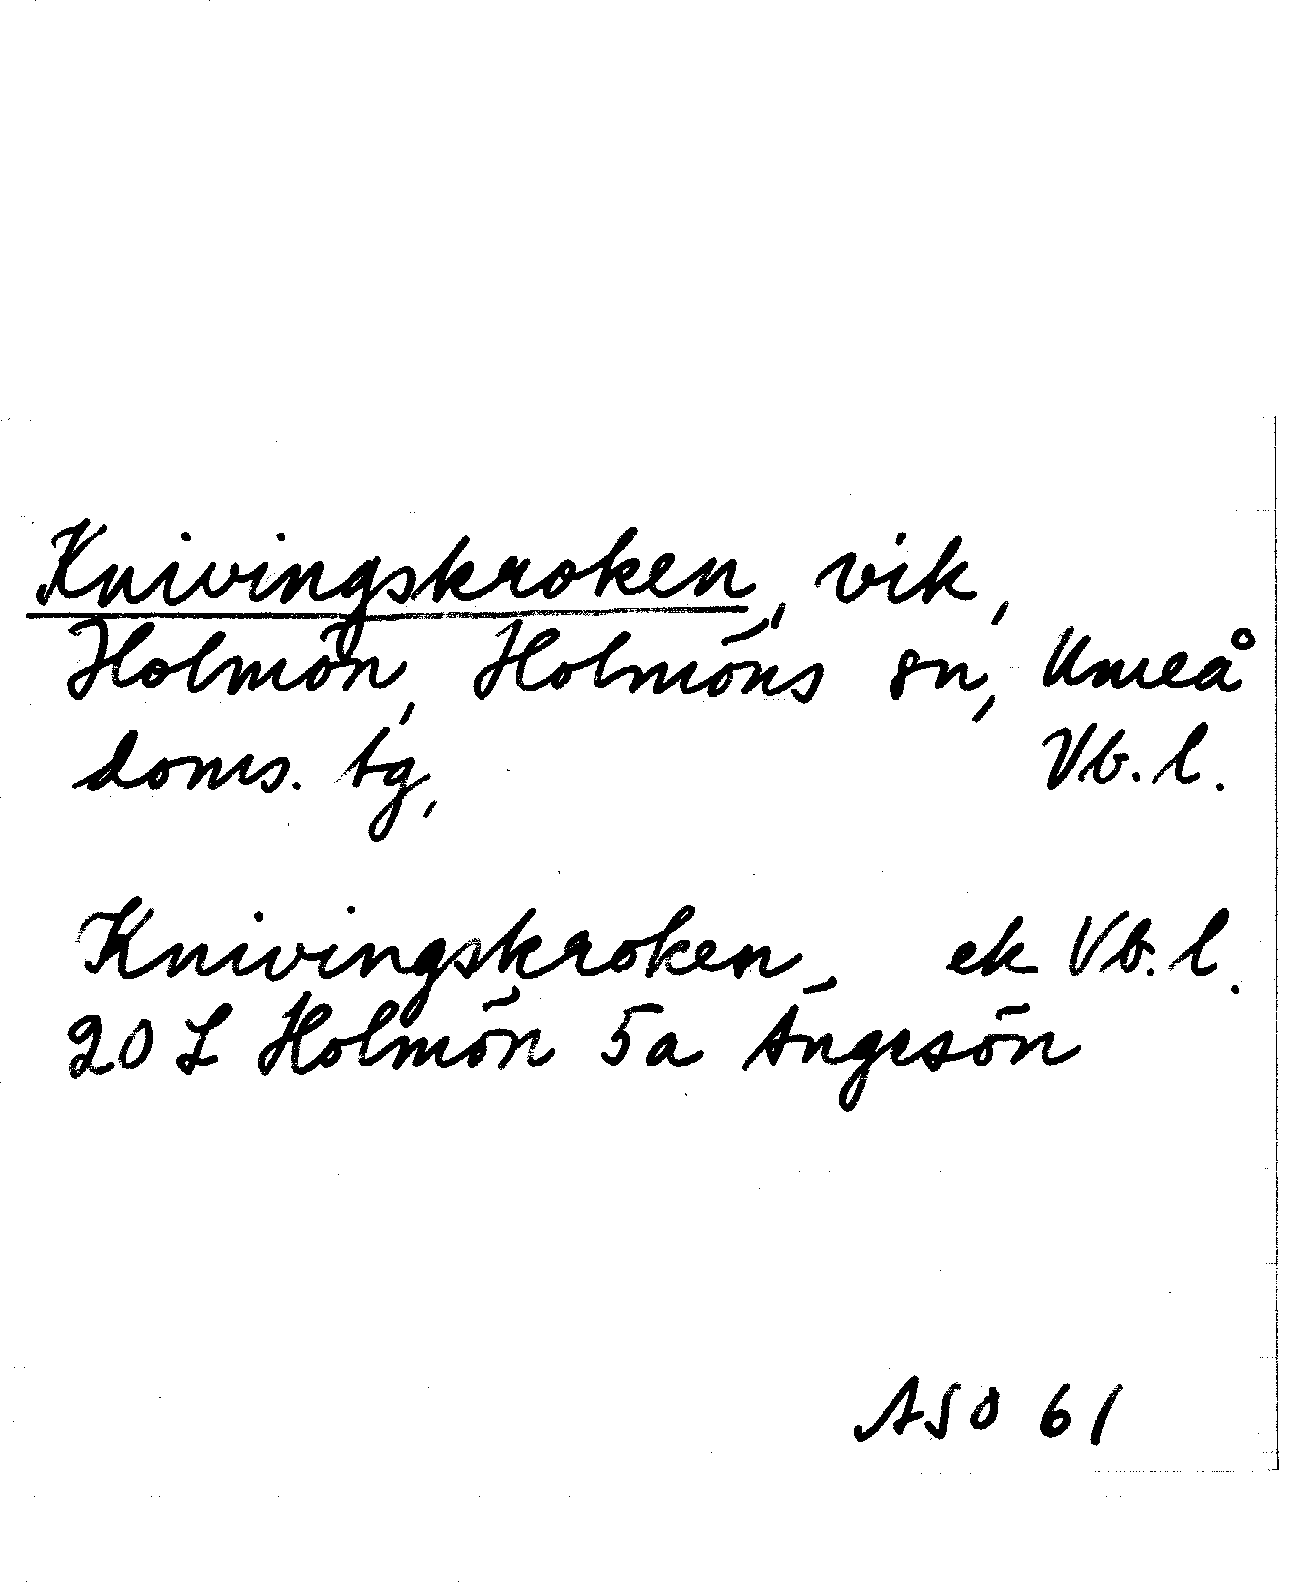 Knivingskroken, vik,
Holmön, Holmöns sn, Umeå
doms. tg, Vb. l.
Knivingskroken, ek Vb. l.
20 L Holmön 5a Ängesön
ASO 61